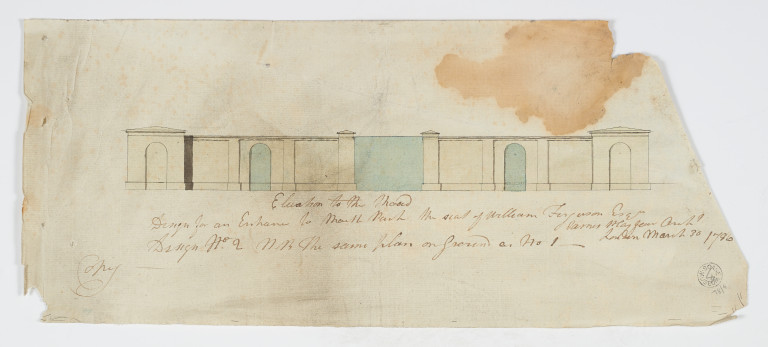 Elevation to the Road
Design for an Entrance to the seat of William Ferguson Esqr
James Playfair Archt
Design No. 2 N.B. The same plan on Ground as No 1
London March 30
Copy